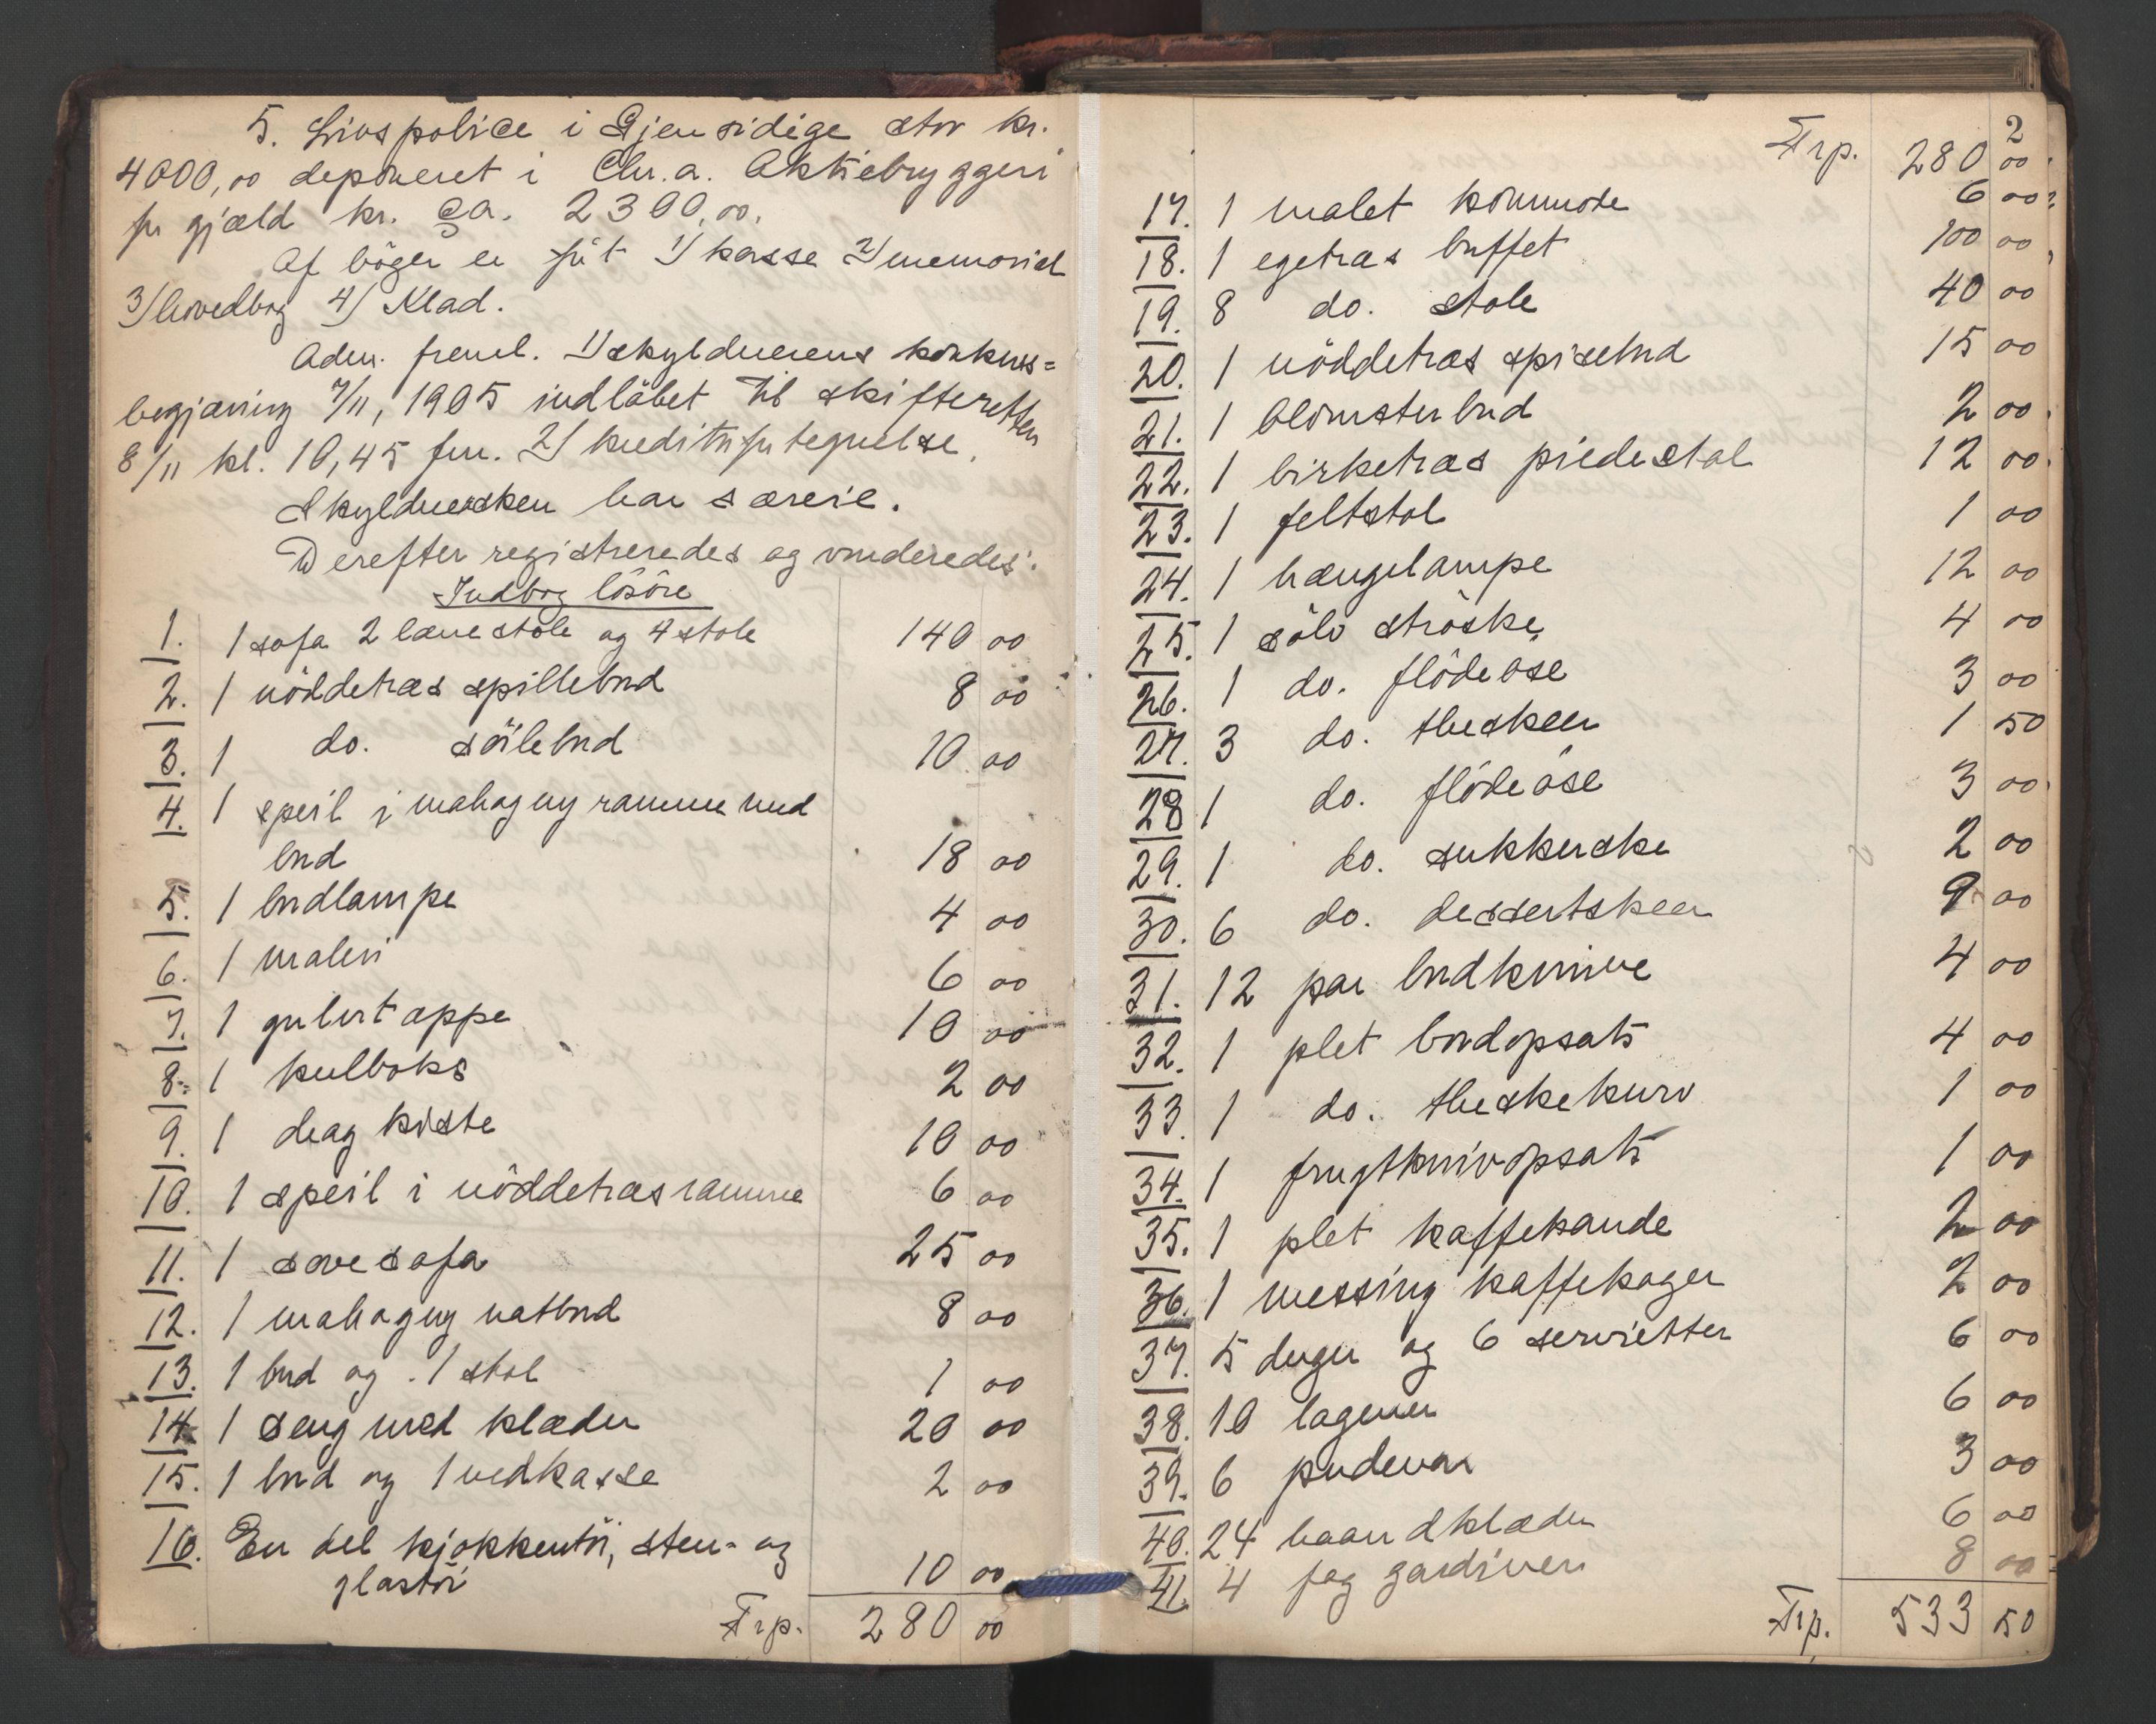 5. Livspolice i Gjensidige stor kr.
4000,00 deponeret i Chr.a. Aktiebryggeri
for gjæld kr. ca. 2300,00.
Af bøger er ført 1) kasse 2) memorial
3) hovedbog 4) Klad.
Adm. freml. 1) skyldnerens konkurs=
begjæring 7/11, 1905 indløbet til skifteretten
8/11 kl. 10,45 fm. 2) kreditorfortegnelse.
Skyldnersken har særeie.
Derefter registreredes og vurderedes:
Indbog løsøre
1. 1 sofa 2 lænestole og 4 stole 140 00
2. 1 nöddetræs spillebord 8 00
3. 1 do. söilebord 10 00
4. 1 speil i mahogny ramme med
bord 18 00
5. 1 bordlampe 4 00
6. 1 maleri 6 00
7. 1 gulvtæppe 10 00
8. 1 kulboks 2 00
9. 1 dragkiste 10 00
10. 1 speil i nöddetræsramme 6 00
11. 1 sovesofa 25 00
12. 1 mahogny natbord 8 00
13. 1 bord og 1 stol 1 00
14. 1 seng med klæder 20 00
15. 1 bord og 1 vedkasse 2 00
16. En del kjøkkentöi, sten- og
glastöi 10 00
Trp. 280 00
2
Trp. 280 00
17. 1 malet kommode 6 00
18. 1 egetræs buffet 100 00
19. 8 do. stole 40 00
20. 1 nöddetræs spisebord 15 00
21. 1 blomsterbord 2 00
22. 1 birketræs piedestal 12 00
23. 1 feltstol 1 00
24. 1 hængelampe 12 00
25. 1 sölv ströske 4 00
26. 1 do. flödeöse 3 00
27. 3 do. theskeer 1 50
28 1 do. flödeöse 3 00
29. 1 do. sukkerske 2 00
30. 6 do. dessertskeer 9 00
31. 12 par bordknive 4 00
32. 1 plet bordopsats 4 00
33. 1 do. theskekurv 1 00
34. 1 frugtknivopsats 1 00
35. 1 plet kaffekande 2 00
36. 1 messing kaffekoger 2 00
37. 5 duger og 6 servietter 6 00
38. 10 lagener 6 00
39. 6 pudevar 3 00
40. 24 haandklæder 6 00
41. 4 fag gardiner 8 00
Trp. 533 50